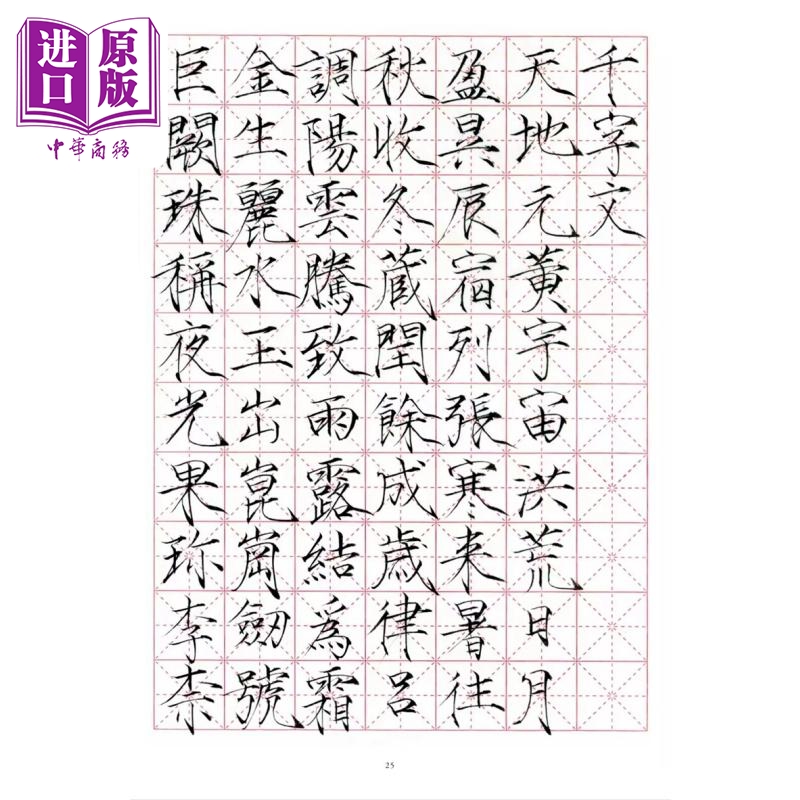 进口
原版
中华商务
千字文
天地元黄宇宙洪荒日月
盈昃辰宿列張寒来暑往
秋收冬蔵閏餘成歳律呂
調陽雲騰致雨露結爲霜
金生麗水玉出崑崗劒號
巨闕珠稱夜光果珎李柰
25